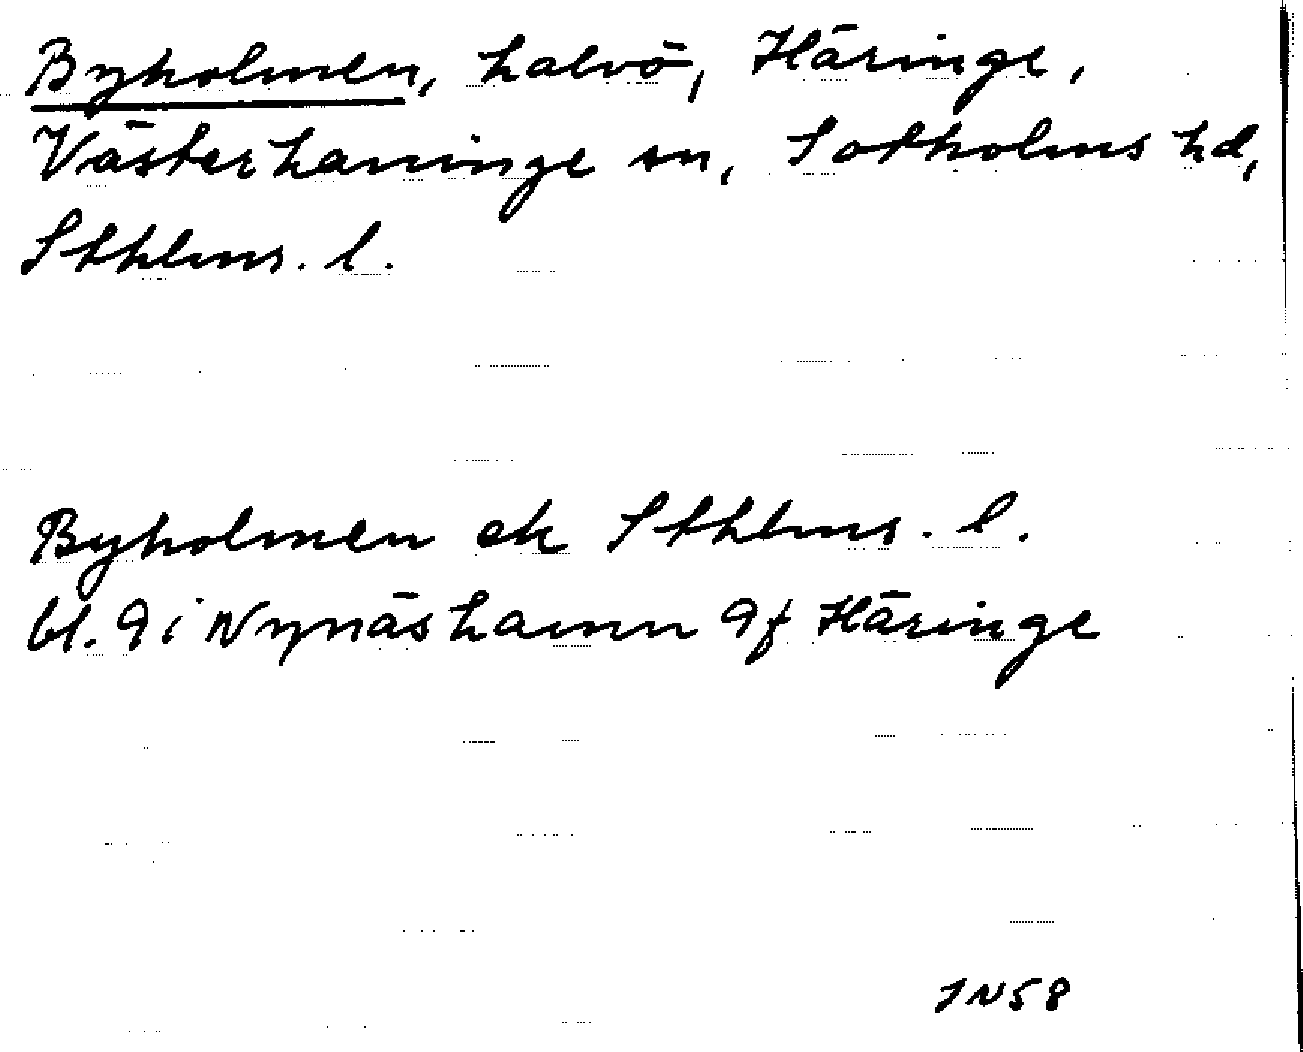 Byholmen, halvö, Häringe,
Västerhaninge sn, Sotholms hd,
Sthlms. l.
Byholmen ek Sthlms. l.
bl. 9i Nynäshamn 9f Häringe
JN58